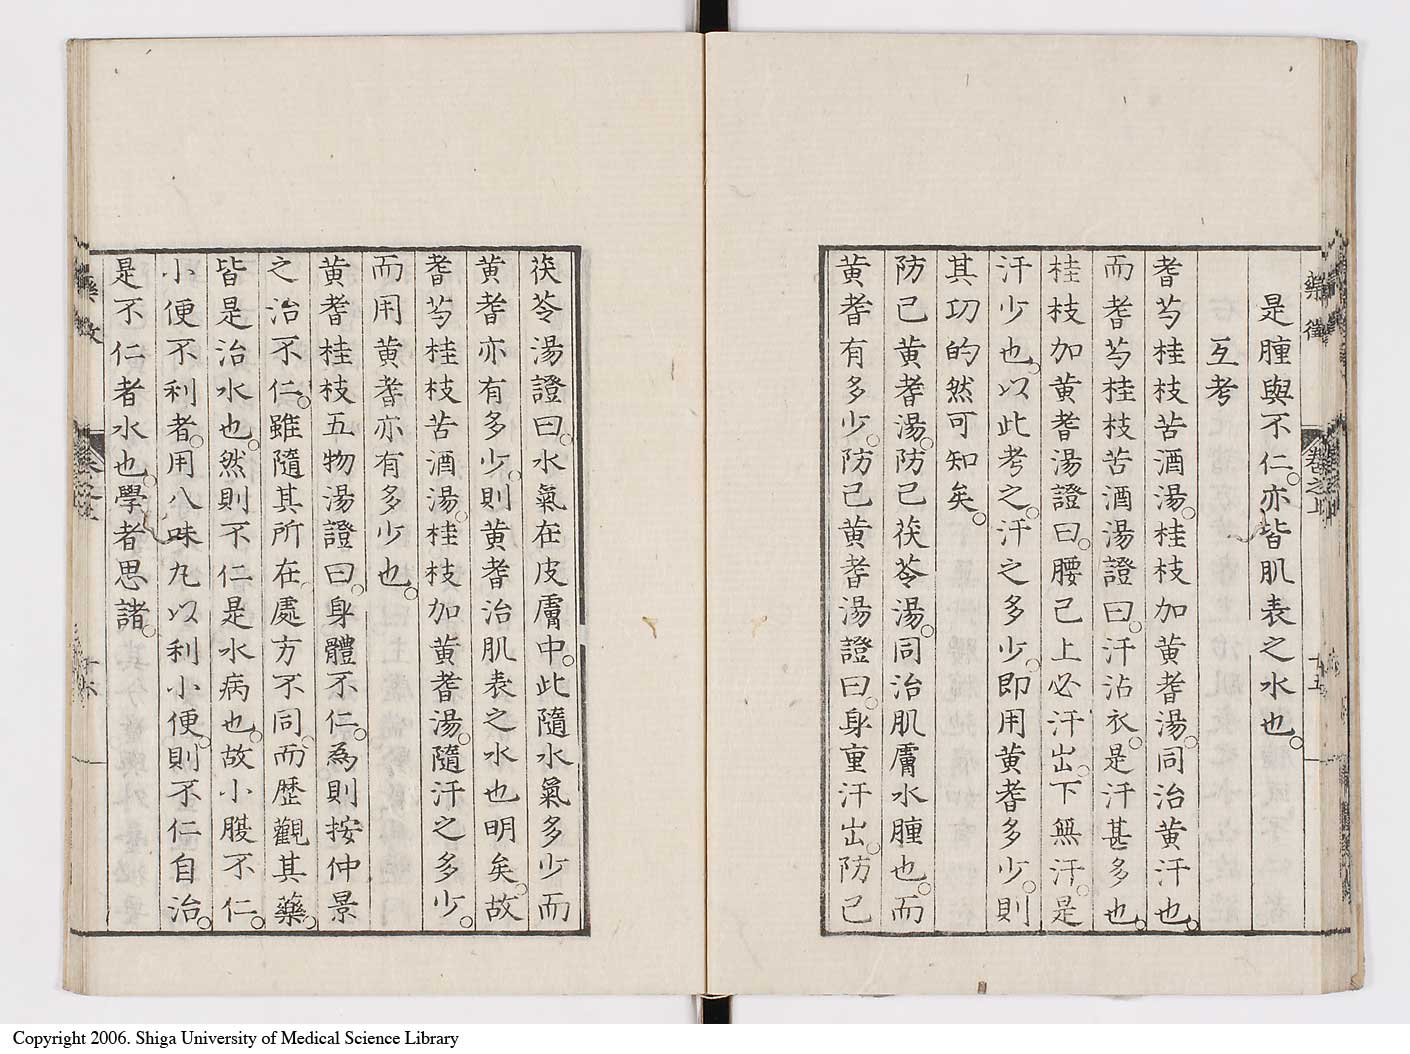 藥徵
卷之上
十五
是腫與不仁。亦皆肌表之水也。
互考
耆芍桂枝苦酒湯。桂枝加黃耆湯。同治黃汗也。
而耆芍桂枝苦酒湯證曰。汗沾衣。是汗甚多也。
桂枝加黃耆湯證曰。腰已上必汗出。下無汗。是
汗少也。以此考之。汗之多少。即用黃耆多少。則
其功的然可知矣。
防己黃耆湯。防己茯苓湯。同治肌膚水腫也。而
黃耆有多少。防己黃耆湯證曰。身重汗出。防己
茯苓湯證曰。水氣在皮膚中。此隨水氣多少而
黃耆亦有多少。則黃耆治肌表之水也明矣。故
耆芍桂枝苦酒湯。桂枝加黃耆湯。隨汗之多少。
而用黃耆亦有多少也。
黃耆桂枝五物湯證曰。身體不仁。為則按仲景
之治不仁。雖隨其所在處方不同。而歷觀其藥。
皆是治水也。然則不仁是水病也。故小腹不仁。
小便不利者。用八味丸以利小便。則不仁自治。
是不仁者水也。學者思諸。
十六
Copyright 2006. Shiga University of Medical Science Library